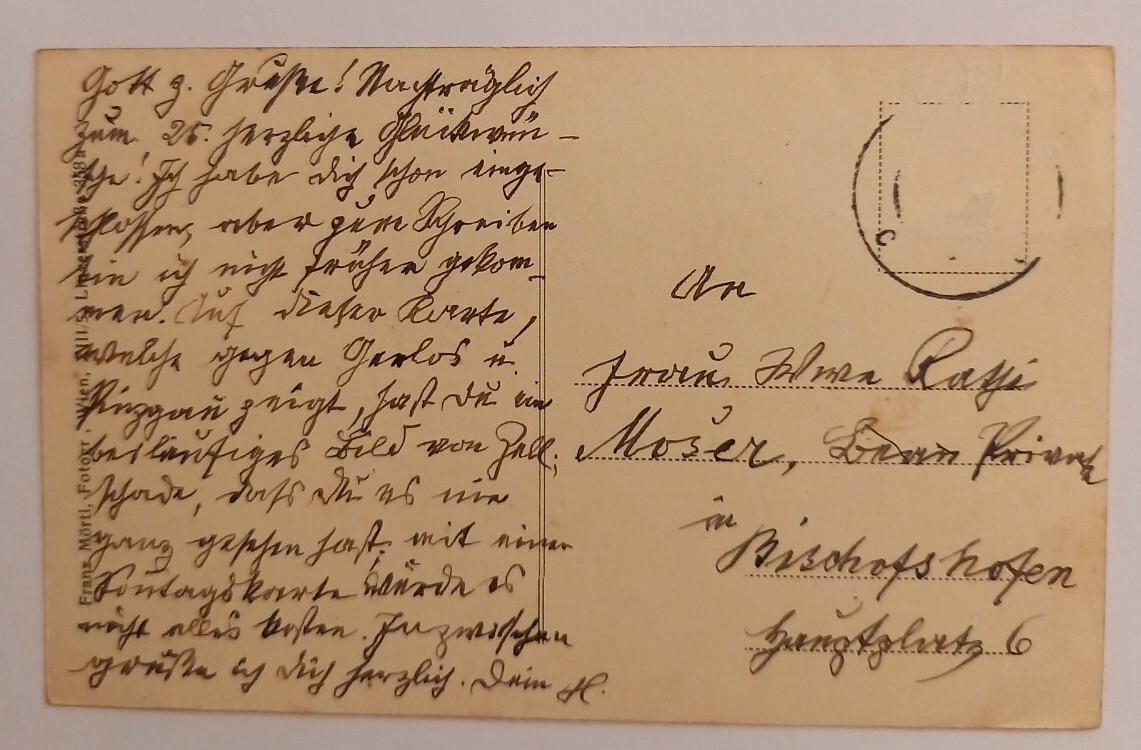 Gott z. Gruße! Nachträglich
zum 25. herzliche Glückwün-
sche! Ich habe dich schon einge-
schlossen, aber zum Schreiben
bin ich nicht früher gekom-
men. Auf dieser Karte,
welche gegen Gerlos u.
Pinzgau zeigt, hast Du ein
beiläufiges Bild von Zell;
schade, dass Du es nie
ganz gesehen hast; mit einer
Sontagskarte würde es
nicht alles kosten. Inzwischen
grüße ich Dich herzlich. Dein H.
Franz Mörtl, Fotogr., Wien, Linzerstraße
An
Frau Wwe Kathi
Moser, Private
in
Bischofshofen
Hauptplatz 6